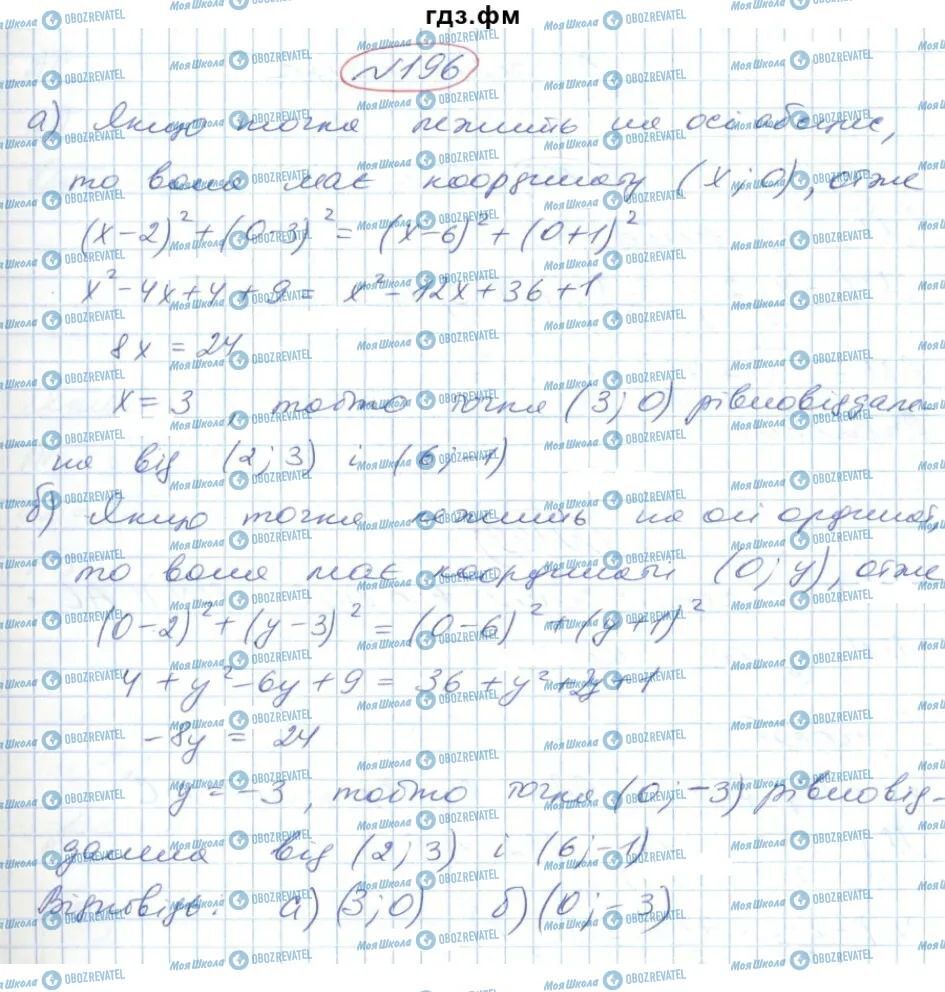 гдз.фм
№196
а) Якщо точка лежить на осі абсцис,
то вона має координату (x; 0), отже
(x-2)² + (0-3)² = (x-6)² + (0+1)²
x² - 4x + 4 + 9 = x² - 12x + 36 + 1
8x = 24
x = 3, тобто точка (3; 0) рівновіддале
на від (2; 3) і (6; -1)
б) Якщо точка лежить на осі ординат,
то вона має координати (0; y), отже
(0-2)² + (y-3)² = (0-6)² + (y+1)²
4 + y² - 6y + 9 = 36 + y² + 2y + 1
-8y = 24
y = -3, тобто точка (0; -3) рівновід-
далена від (2; 3) і (6; -1)
Відповідь: а) (3; 0) б) (0; -3)